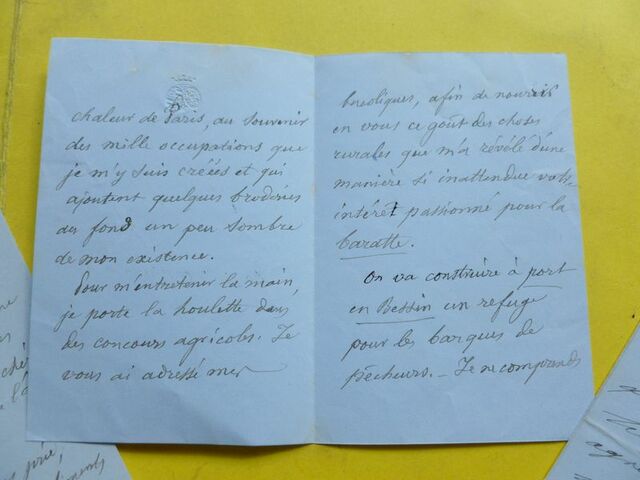 chaleur de Paris, au souvenir
des mille occupations que
je m'y suis créées et qui
ajoutent quelques broderies
au fond un peu sombre
de mon existence.
Pour m'entretenir la main,
je porte la houlette dans
des concours agricoles. Je
vous ai adressé mes
bucoliques, afin de nourrir
en vous ce goût des choses
rurales que m'a révélé d'une
manière si inattendue votre
intérêt passionné pour la
baratte.
On va construire à port
en Bessin un refuge
pour les barques de
pêcheurs. - Je ne comprends